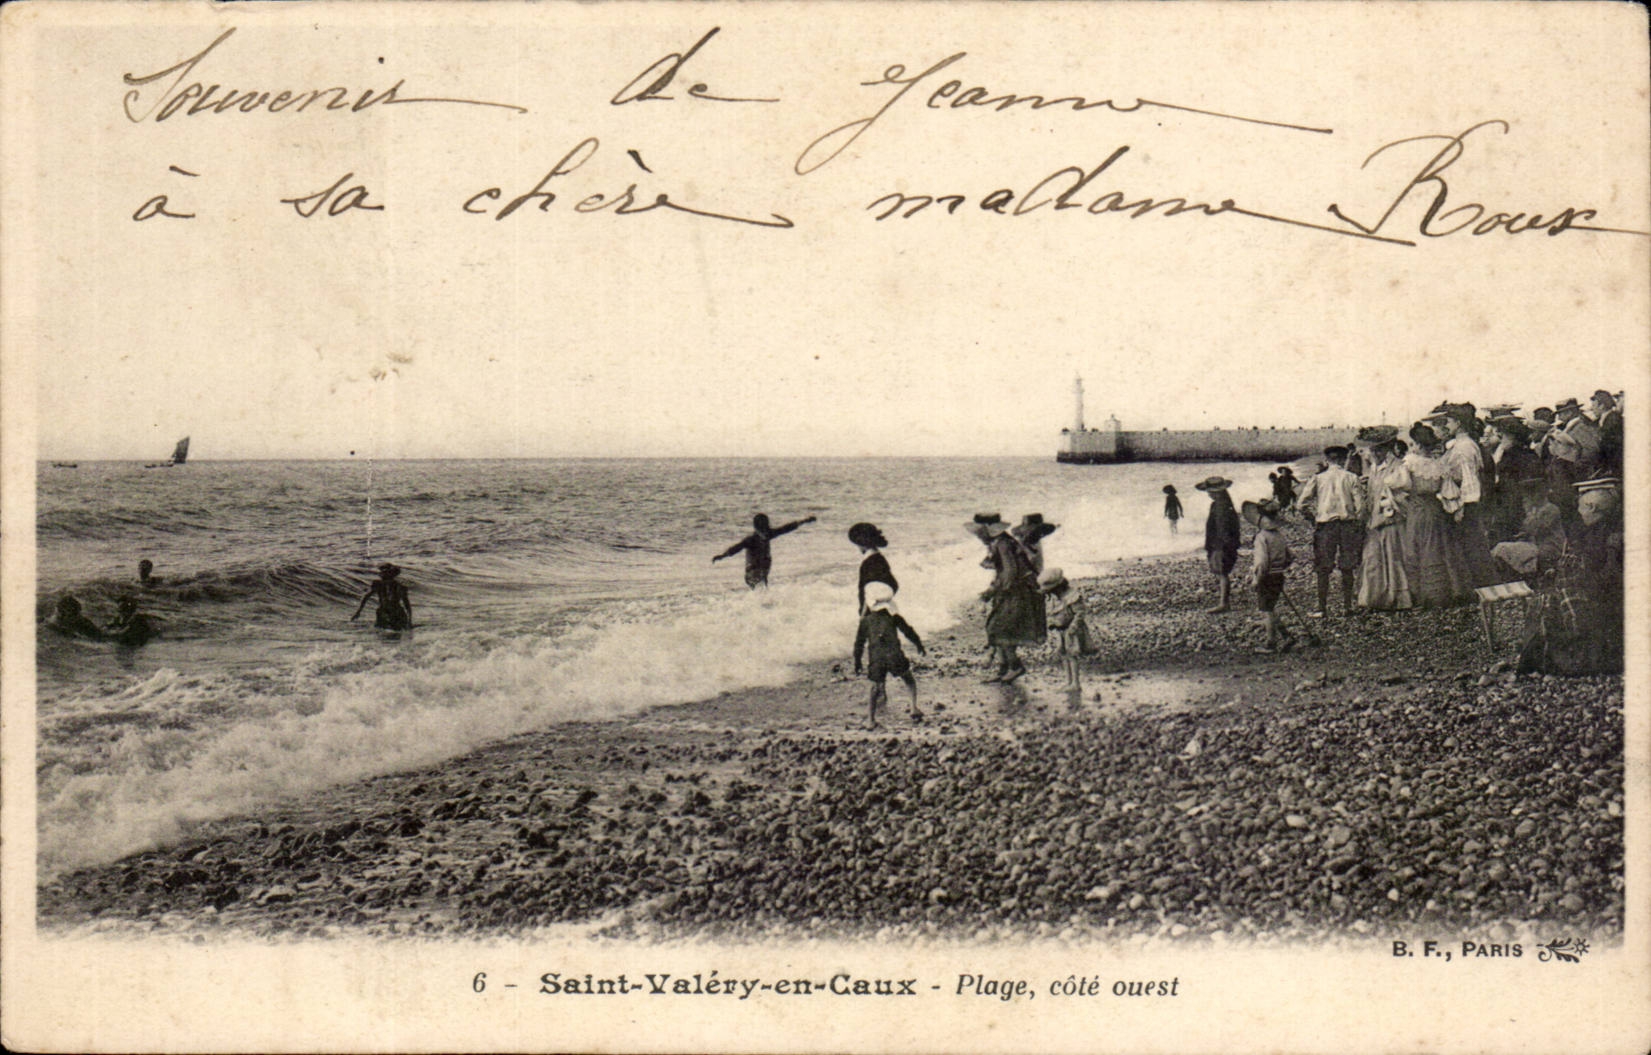 Souvenir de Jeanne
à sa chère madame Roux
B. F., PARIS
6 - Saint-Valéry-en-Caux - Plage, côté ouest